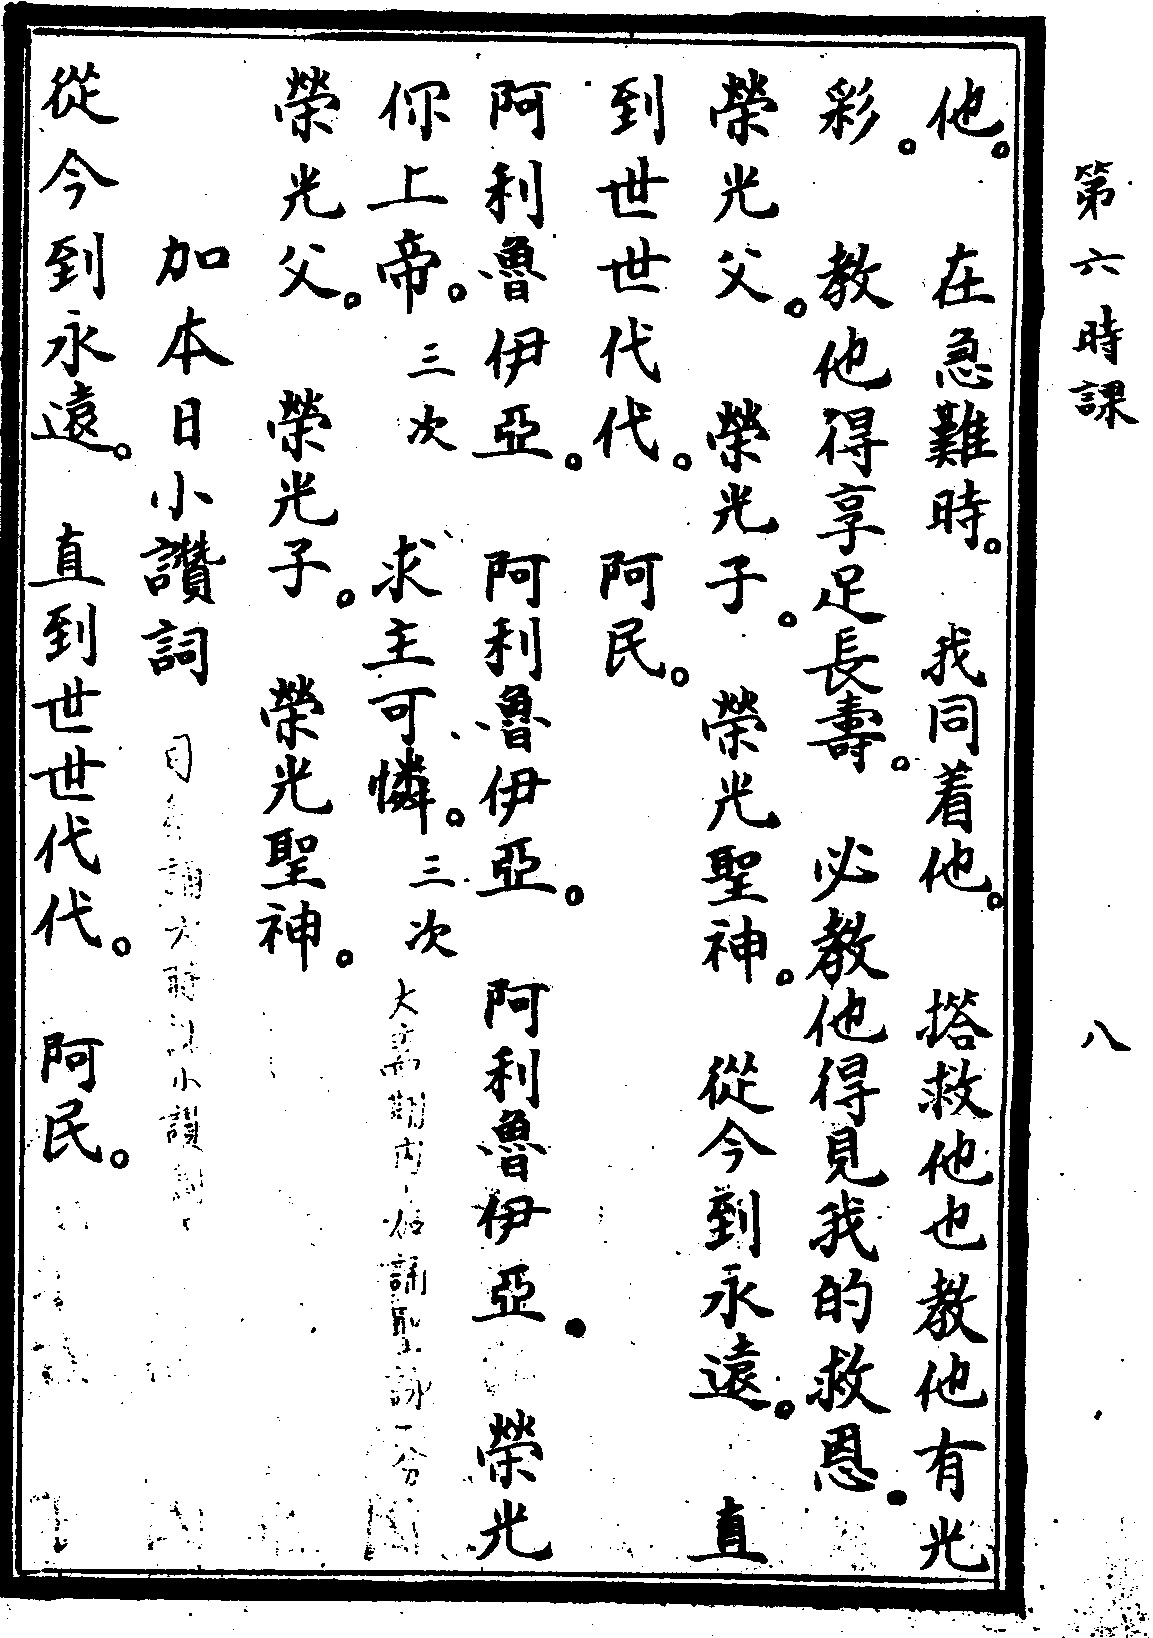 第六時課 八
他。在急難時。我同着他。搭救他也教他有光
彩。教他得享足長壽。必教他得見我的救恩。
榮光父。榮光子。榮光聖神。從今到永遠。直
到世世代代。阿民。
阿利魯伊亞。阿利魯伊亞。阿利魯伊亞。榮光
你上帝。三次 求主可憐。三次 大齋期內 誦聖詠一分
榮光父。榮光子。榮光聖神。
加本日小讚詞 誦六時課小讚詞
從今到永遠。直到世世代代。阿民。